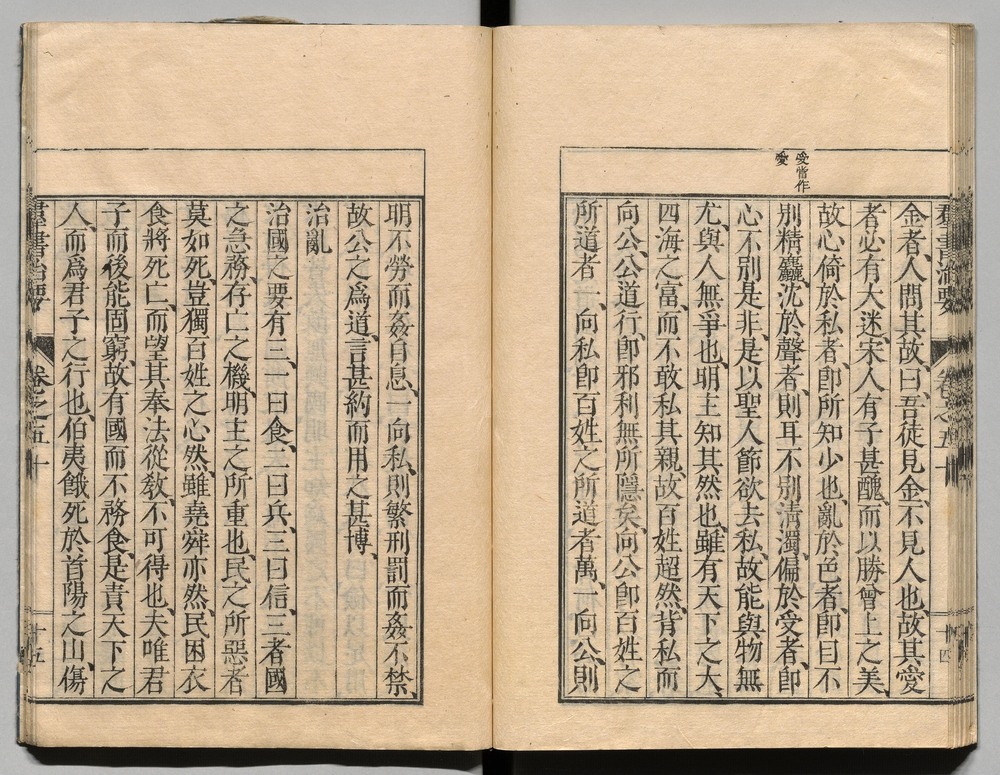 群書治要 卷之五十 十四
愛當作
愛
金者、人問其故、曰、吾徒見金、不見人也、故其愛
者必有大迷、宋人有子甚醜、而以勝曾上之美、
故心倚於私者、卽所知少也、亂於色者、卽目不
別精麤、沈於聲者、則耳不別淸濁、偏於受者、卽
心不別是非、是以聖人節欲去私、故能與物無
尤、與人無爭也、明主知其然也、雖有天下之大、
四海之富、而不敢私其親、故百姓超然、背私而
向公、公道行、卽邪利無所隱矣、向公卽百姓之
所道者一、向私卽百姓之所道者萬、一向公、則
明不勞而姦自息、一向私、則繁刑罰而姦不禁、
故公之爲道、言甚約而用之甚博、
治亂
治國之要有三、一曰食、二曰兵、三曰信、三者國
之急務、存亡之機、明主之所重也、民之所惡者
莫如死、豈獨百姓之心然、雖堯舜亦然、民困衣
食將死亡、而望其奉法從敎、不可得也、夫唯君
子而後能固窮、故有國而不務食、是責天下之
人、而爲君子之行也、伯夷餓死於首陽之山、傷
群書治要 卷之五十 十五